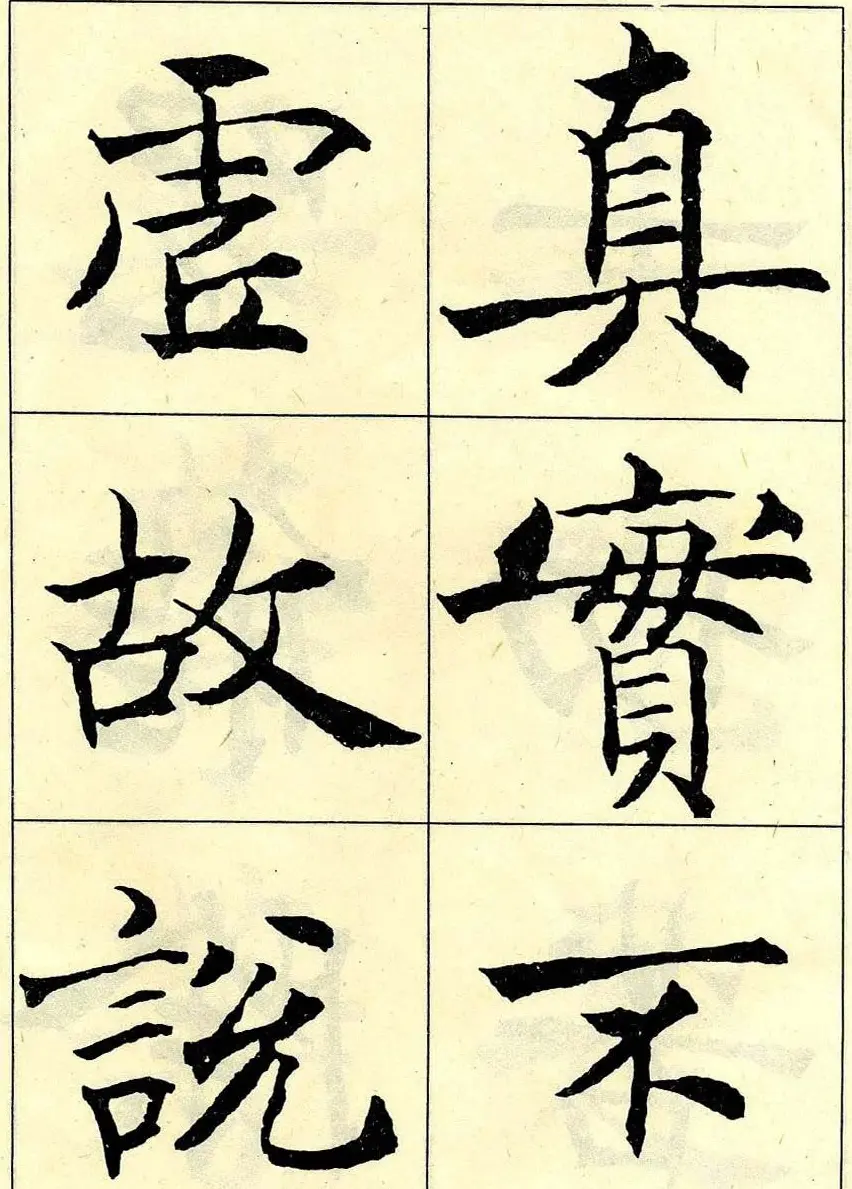 真實不
虛故說